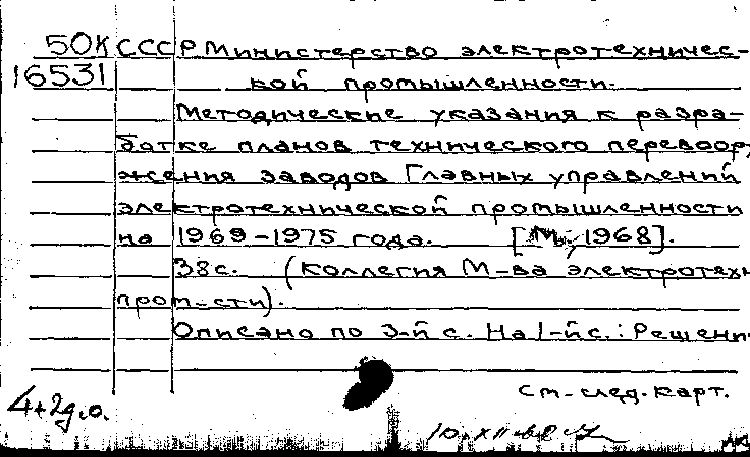 50К СССР Министерство электротехничес-
16531 кой промышленности.
Методические указания к разра-
ботке планов технического перевоору
жения заводов Главных управлений
электротехнической промышленности
на 1969-1975 года. [М., 1968].
38с. (Коллегия М-ва электротехн
пром-сти).
Описано по 3-й с. На 1-й с.: Решени
см. след. карт.
4+2д.о.
10.XII